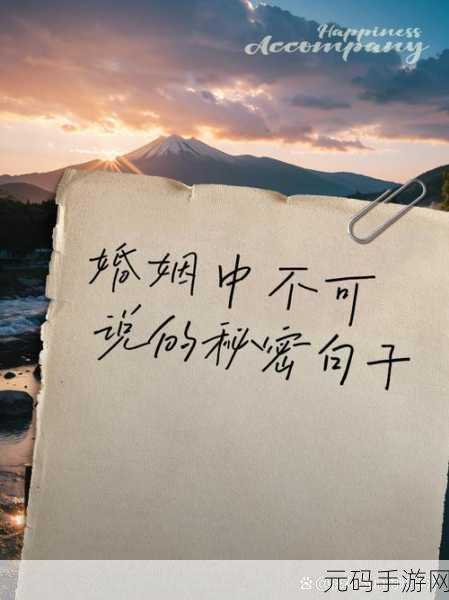 Happiness
Accompany
婚姻中不可
说的秘密句子
元码手游网